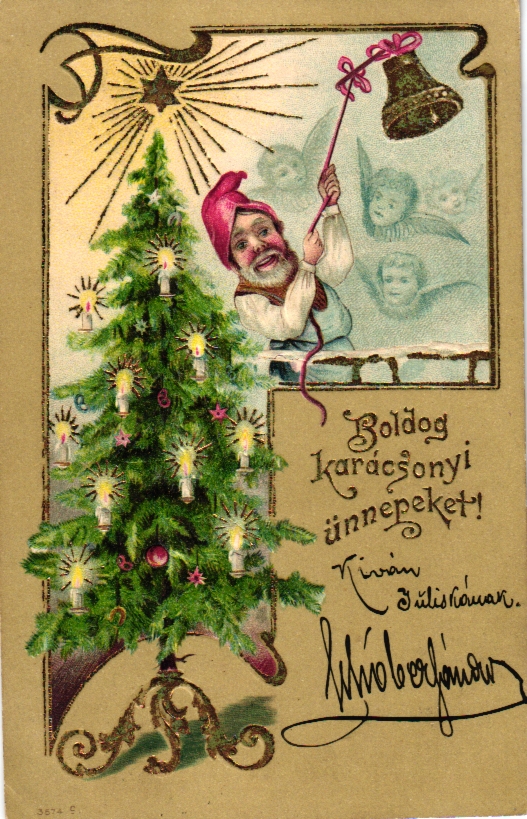 Boldog
karácsonyi
ünnepeket!
Kiván
Juliskának.
3874